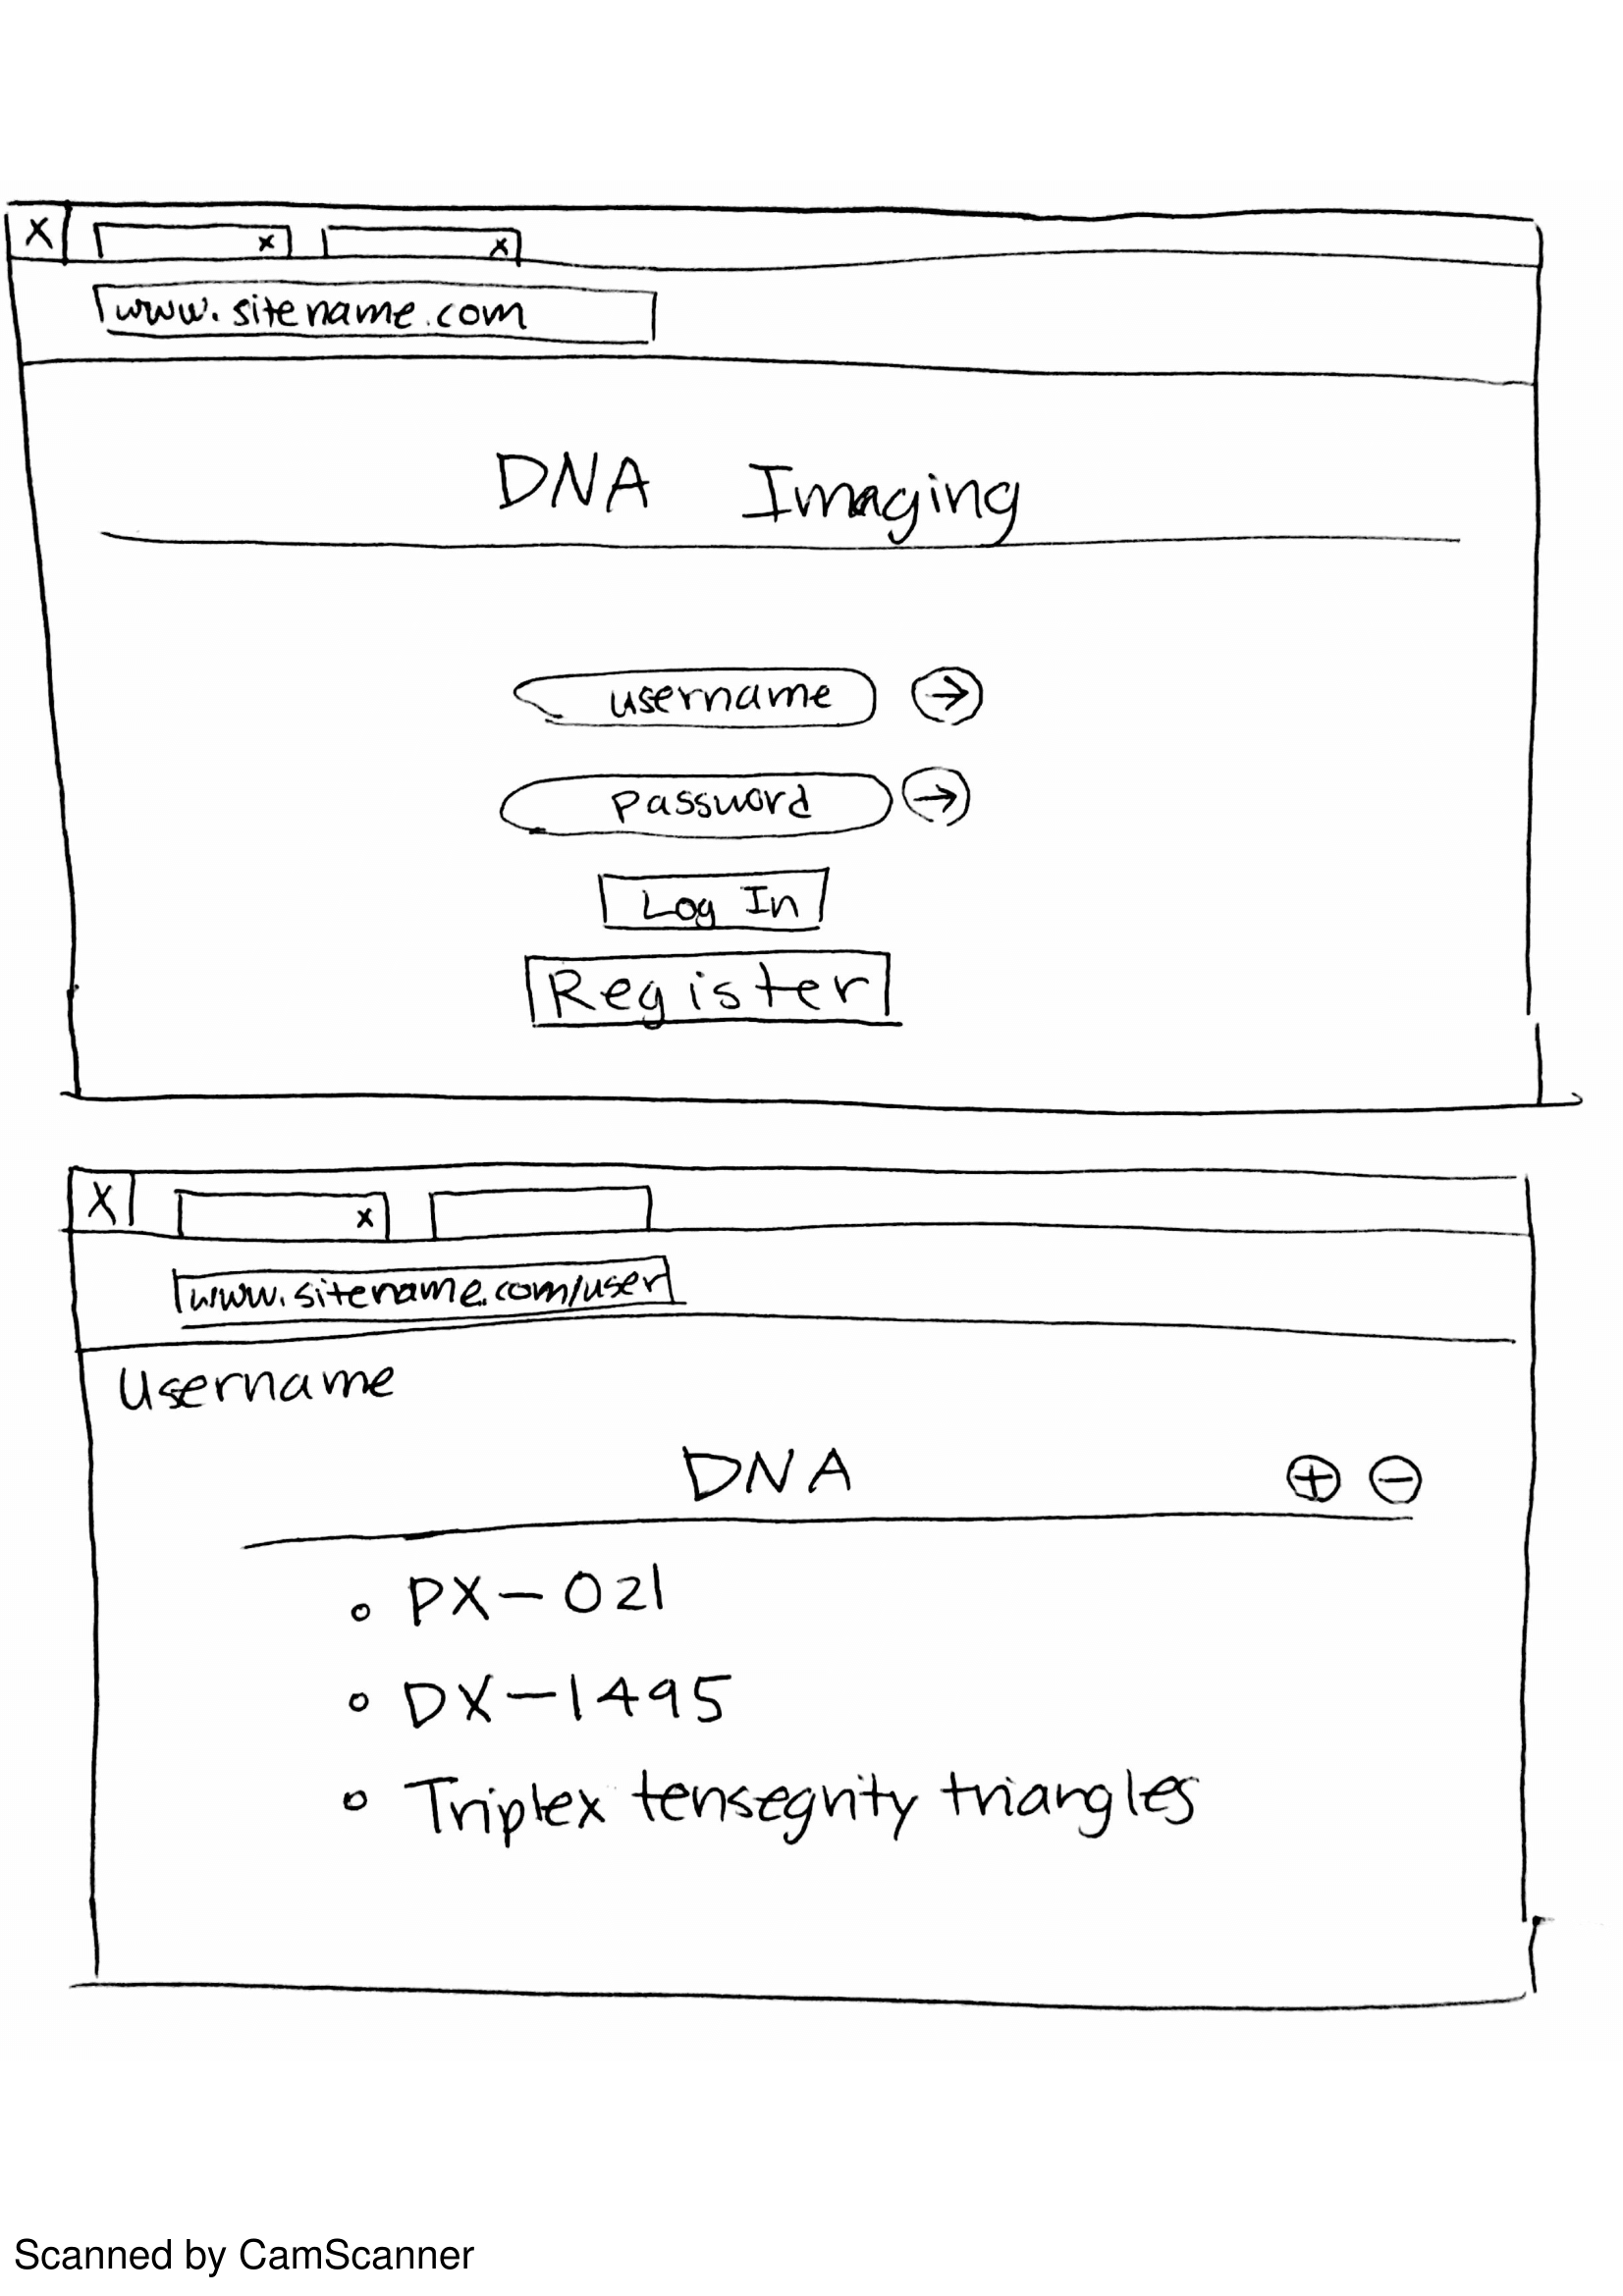 X
x
x
www.sitename.com
DNA Imaging
username →
password →
Log In
Register
X
x
www.sitename.com/user
Username
DNA + −
PX-021
DX-1495
Triplex tensegrity triangles
Scanned by CamScanner